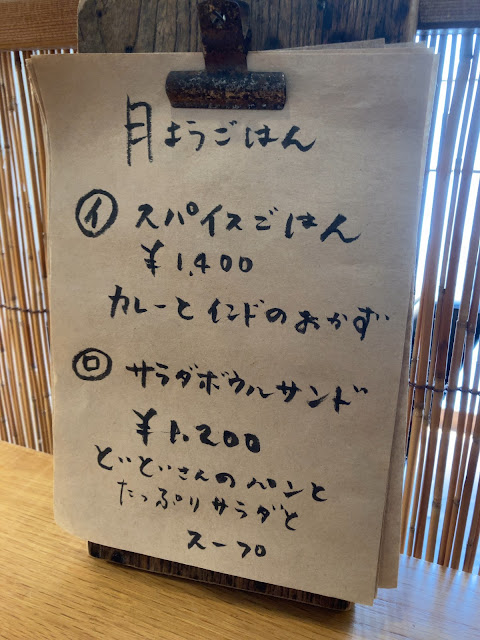 月ようごはん
イ スパイスごはん
¥1,400
カレーとインドのおかず
ロ サラダボウルサンド
¥1,200
どいどいさんのパンと
たっぷりサラダと
スープ